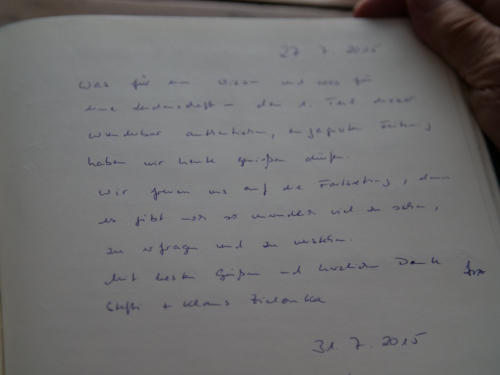 27. 7. 2015
Was für ein Wissen und was für
eine Leidenschaft – den 1. Teil dieser
wunderbar authentischen, engagierten Führung
haben wir heute genießen dürfen.
Wir freuen uns auf die Fortsetzung, denn
es gibt noch so viel zu sehen,
zu erfragen und zu verstehen.
Mit besten Grüßen und herzlichem Dank
Steffi + Klaus
31. 7. 2015